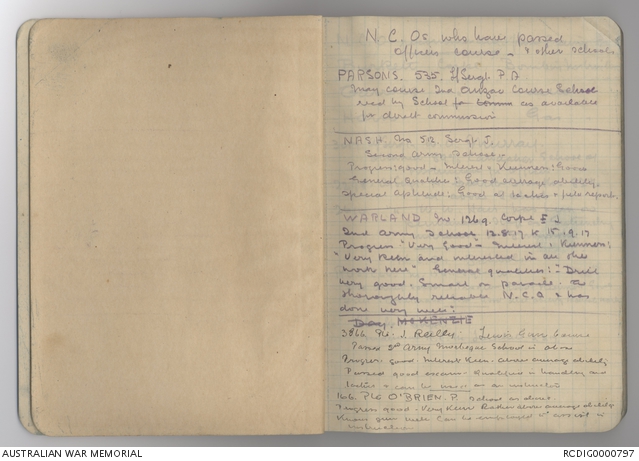 N.C.Os who have passed
officers course - & other schools
PARSONS. 535. L/Sergt P.B
May course 2nd Anzac Course School
recd by School for Comm as available
for direct commission
NASH. No 512 Sergt J.
Second Army School.
Progress: good - Interest & Keenness: Good
General Qualities: Good average ability,
special aptitude: Good at tactics & field reports.
WARLAND No 1269 Corpl E J
2nd Army School 12.8.17 to 15.9.17
Progress "Very Good" Interest & Keenness:
"Very Keen and interested in all the
work here" General qualities: "Drill
very good. Smart on parade. A
thoroughly reliable N.C.O & has
done very well"
Day. McKENZIE
3866 Pte. J. Reilly. Lewis Gun Course
Passed 2nd Army Musketry School in above
Progress good. Interest Keen. above average ability
Passed good exam. Qualified in handling and
tactics & can be used as an instructor
166. Pte O'BRIEN. P. School as above.
Progress good - Very Keen Rather above average ability
Knows gun well Can be employed to assist in
instruction
AUSTRALIAN WAR MEMORIAL
RCDIG0000797